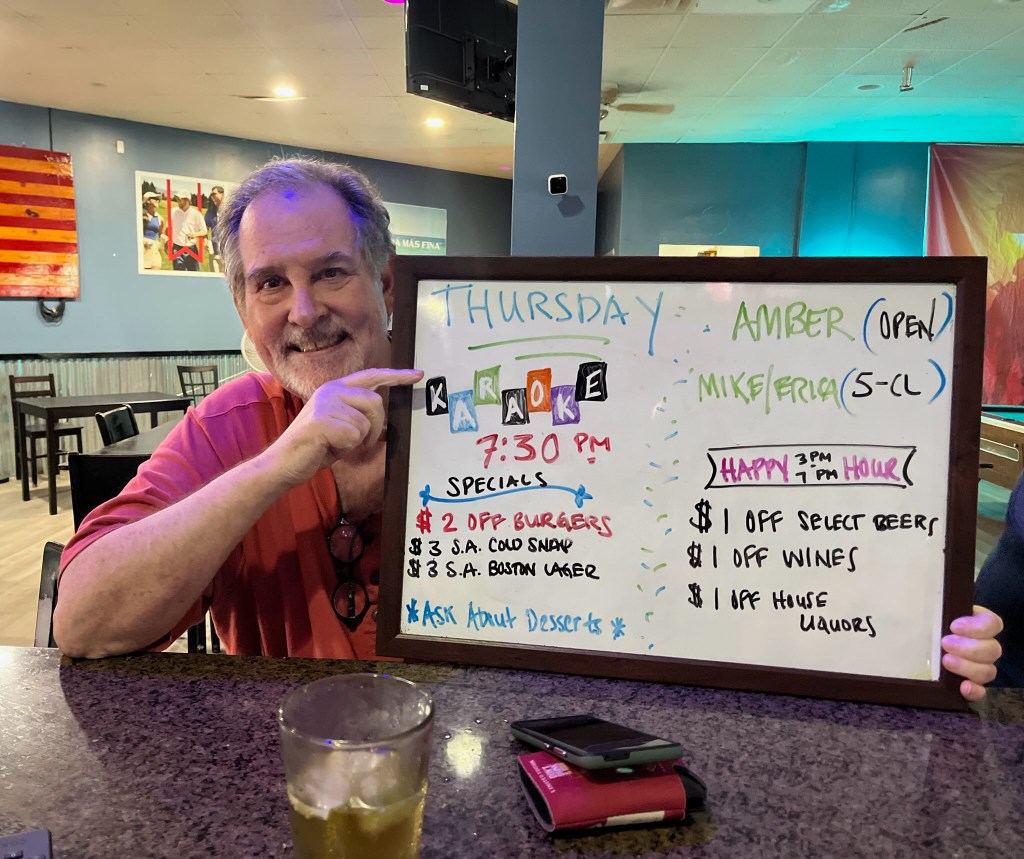 THURSDAY
KARAOKE
7:30 PM
SPECIALS
$2 OFF BURGERS
$3 S.A. COLD SNAP
$3 S.A. BOSTON LAGER
*Ask About Desserts*
AMBER (OPEN)
MIKE/ERICA (5-CL)
HAPPY 3PM 7PM HOUR
$1 OFF SELECT BEERS
$1 OFF WINES
$1 OFF HOUSE
LIQUORS
MÁS FINA